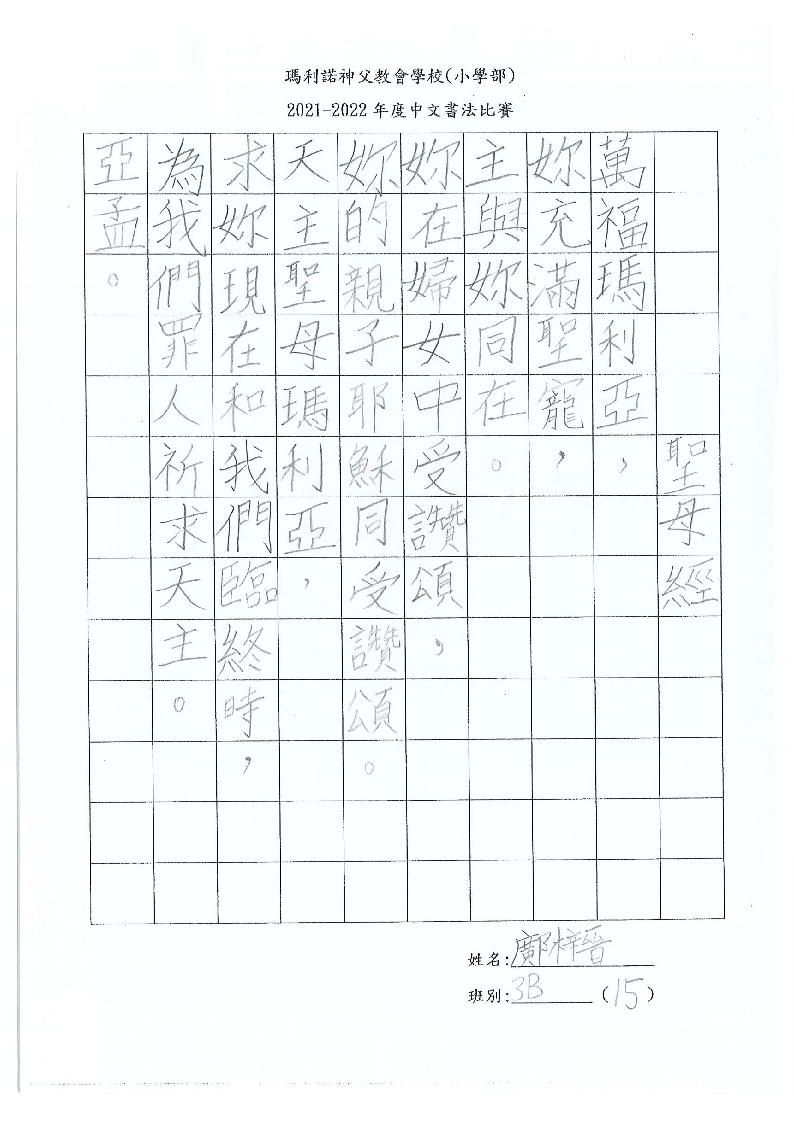 瑪利諾神父教會學校(小學部)
2021-2022 年度中文書法比賽
聖母經
萬福瑪利亞，
妳充滿聖寵，
主與妳同在。
妳在婦女中受讚頌，
妳的親子耶穌同受讚頌。
天主聖母瑪利亞，
求妳現在和我們臨終時，
為我們罪人祈求天主。
亞孟。
姓名:鄺梓晉
班別:3B (15)